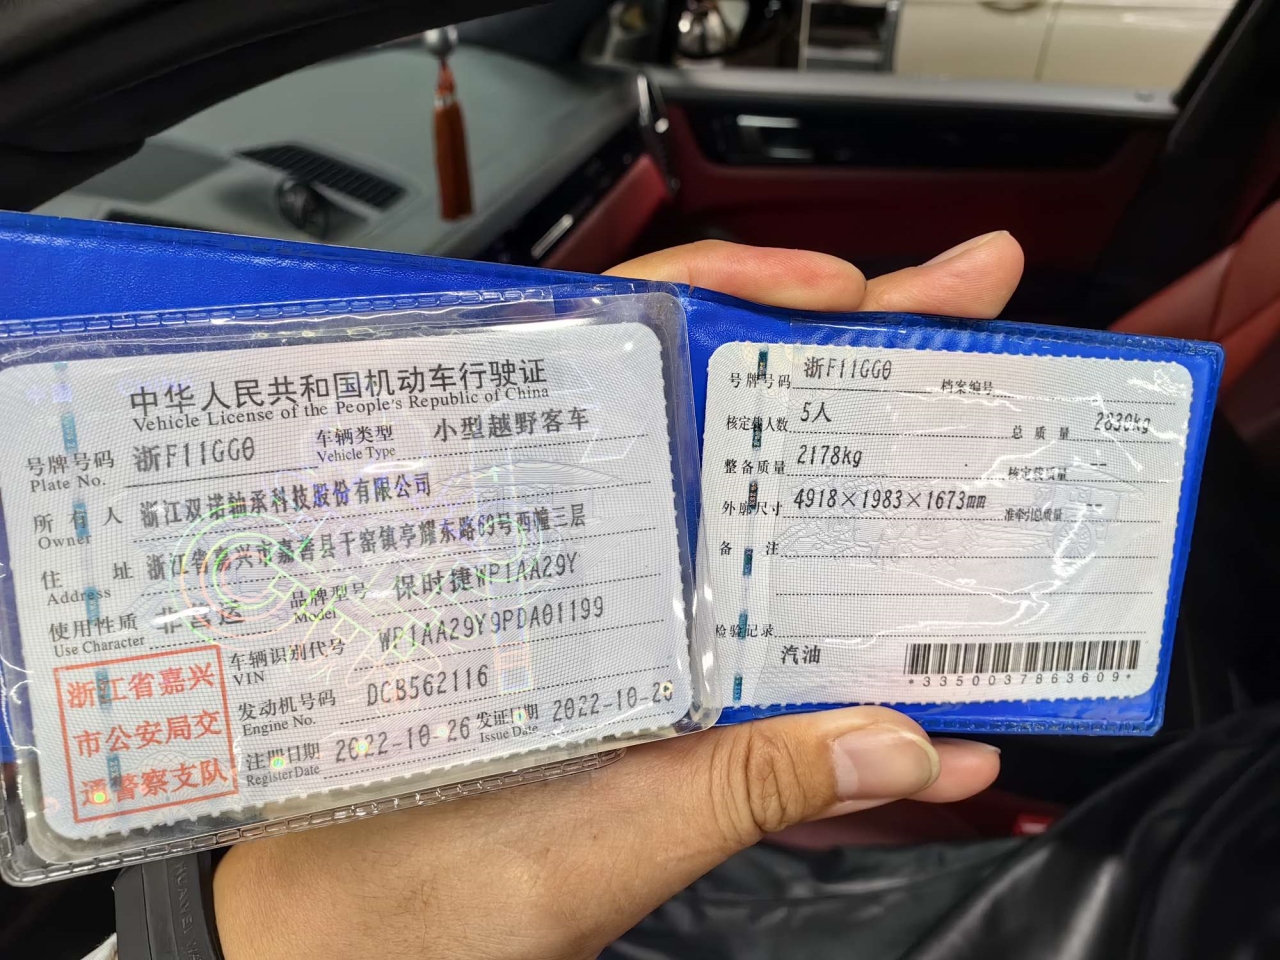 中华人民共和国机动车行驶证
Vehicle License of the People's Republic of China
号牌号码 Plate No. 浙F11GG0 车辆类型 Vehicle Type 小型越野客车
所有人 Owner 浙江双诺轴承科技股份有限公司
住址 Address 浙江省嘉兴市嘉善县干窑镇亭耀东路69号西幢三层
使用性质 Use Character 非营运 品牌型号 Model 保时捷WP1AA29Y
车辆识别代号 VIN WP1AA29Y9PDA01199
发动机号码 Engine No. DCB562116
注册日期 Register Date 2022-10-26 发证日期 Issue Date 2022-10-26
浙江省嘉兴
市公安局交
通警察支队
号牌号码 浙F11GG0 档案编号
核定载人数 5人 总质量 2830kg
整备质量 2178kg 核定载质量 --
外廓尺寸 4918×1983×1673mm 准牵引总质量 --
备注
检验记录
汽油
*3350037863609*
HUAWEI